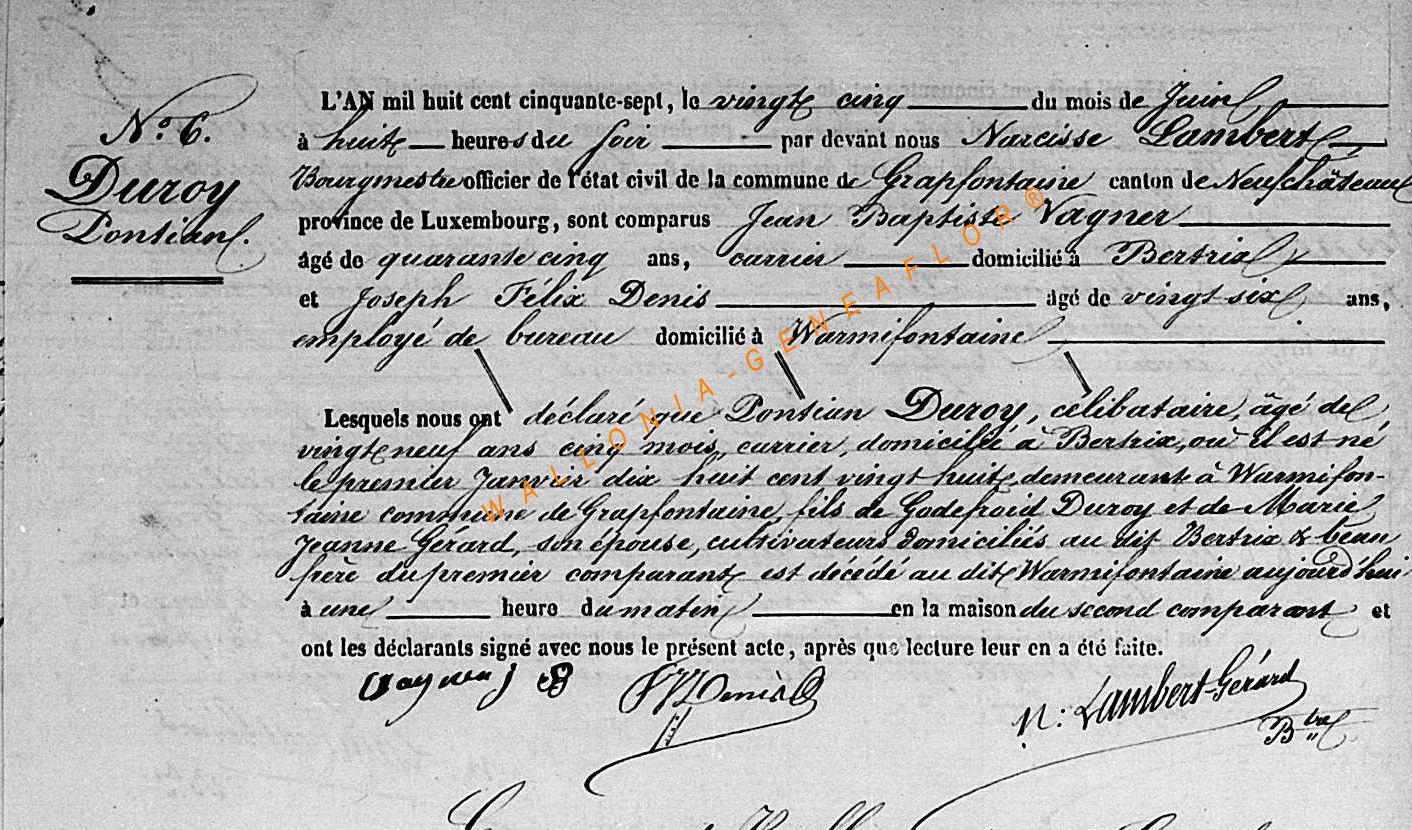 N.o 6.
Duroy
Pontian.
L'AN mil huit cent cinquante-sept, le vingt cinq du mois de Juin
à huit heures du soir par devant nous Narcisse Lambert
Bourgmestre officier de l'état civil de la commune de Grapfontaine canton de Neufchâteau
province de Luxembourg, sont comparus Jean Baptiste Vagner
âgé de quarante cinq ans, carrier domicilié à Bertrix
et Joseph Félix Denis âgé de vingt six ans,
employé de bureau domicilié à Warmifontaine
Lesquels nous ont déclaré que Pontian Duroy, célibataire, âgé de
vingt neuf ans cinq mois, carrier, domicilié à Bertrix, où il est né
le premier Janvier dix huit cent vingt huit, demeurant à Warmifon-
taine commune de Grapfontaine, fils de Godefroid Duroy et de Marie
Jeanne Gérard, son épouse, cultivateurs domiciliés au dit Bertrix & beau
frère du premier comparant est décédé au dit Warmifontaine aujourd'hui
à une heure du matin en la maison du second comparant et
ont les déclarants signé avec nous le présent acte, après que lecture leur en a été faite.
Denis
N: Lambert-Gérard
Btre
WALLONIA-GENEAFLOR®